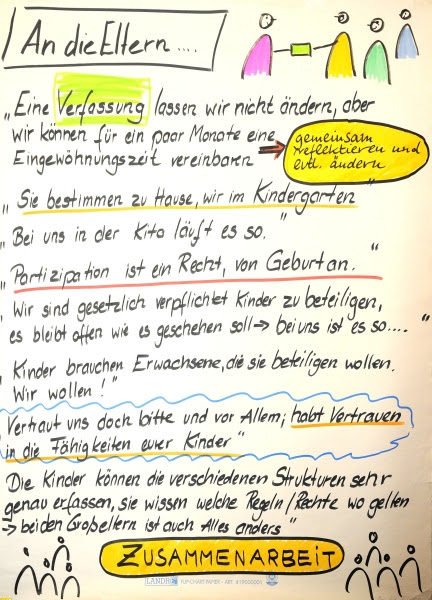 An die Eltern....
„Eine Verfassung lassen wir nicht ändern, aber
wir können für ein paar Monate eine
Eingewöhnungszeit vereinbaren →
gemeinsam
reflektieren und
evtl. ändern
„Sie bestimmen zu Hause, wir im Kindergarten“
„Bei uns in der Kita läuft es so.“
„Partizipation ist ein Recht, von Geburt an.“
„Wir sind gesetzlich verpflichtet Kinder zu beteiligen,
es bleibt offen wie es geschehen soll → bei uns ist es so....“
„Kinder brauchen Erwachsene, die sie beteiligen wollen.
Wir wollen!“
Vertraut uns doch bitte und vor Allem; habt Vertrauen
in die Fähigkeiten eurer Kinder“
„Die Kinder können die verschiedenen Strukturen sehr
genau erfassen, sie wissen welche Regeln/Rechte wo gelten
→ bei den Großeltern ist auch Alles anders“
ZUSAMMENARBEIT
LANDRÉ FLIP-CHART-PAPIER